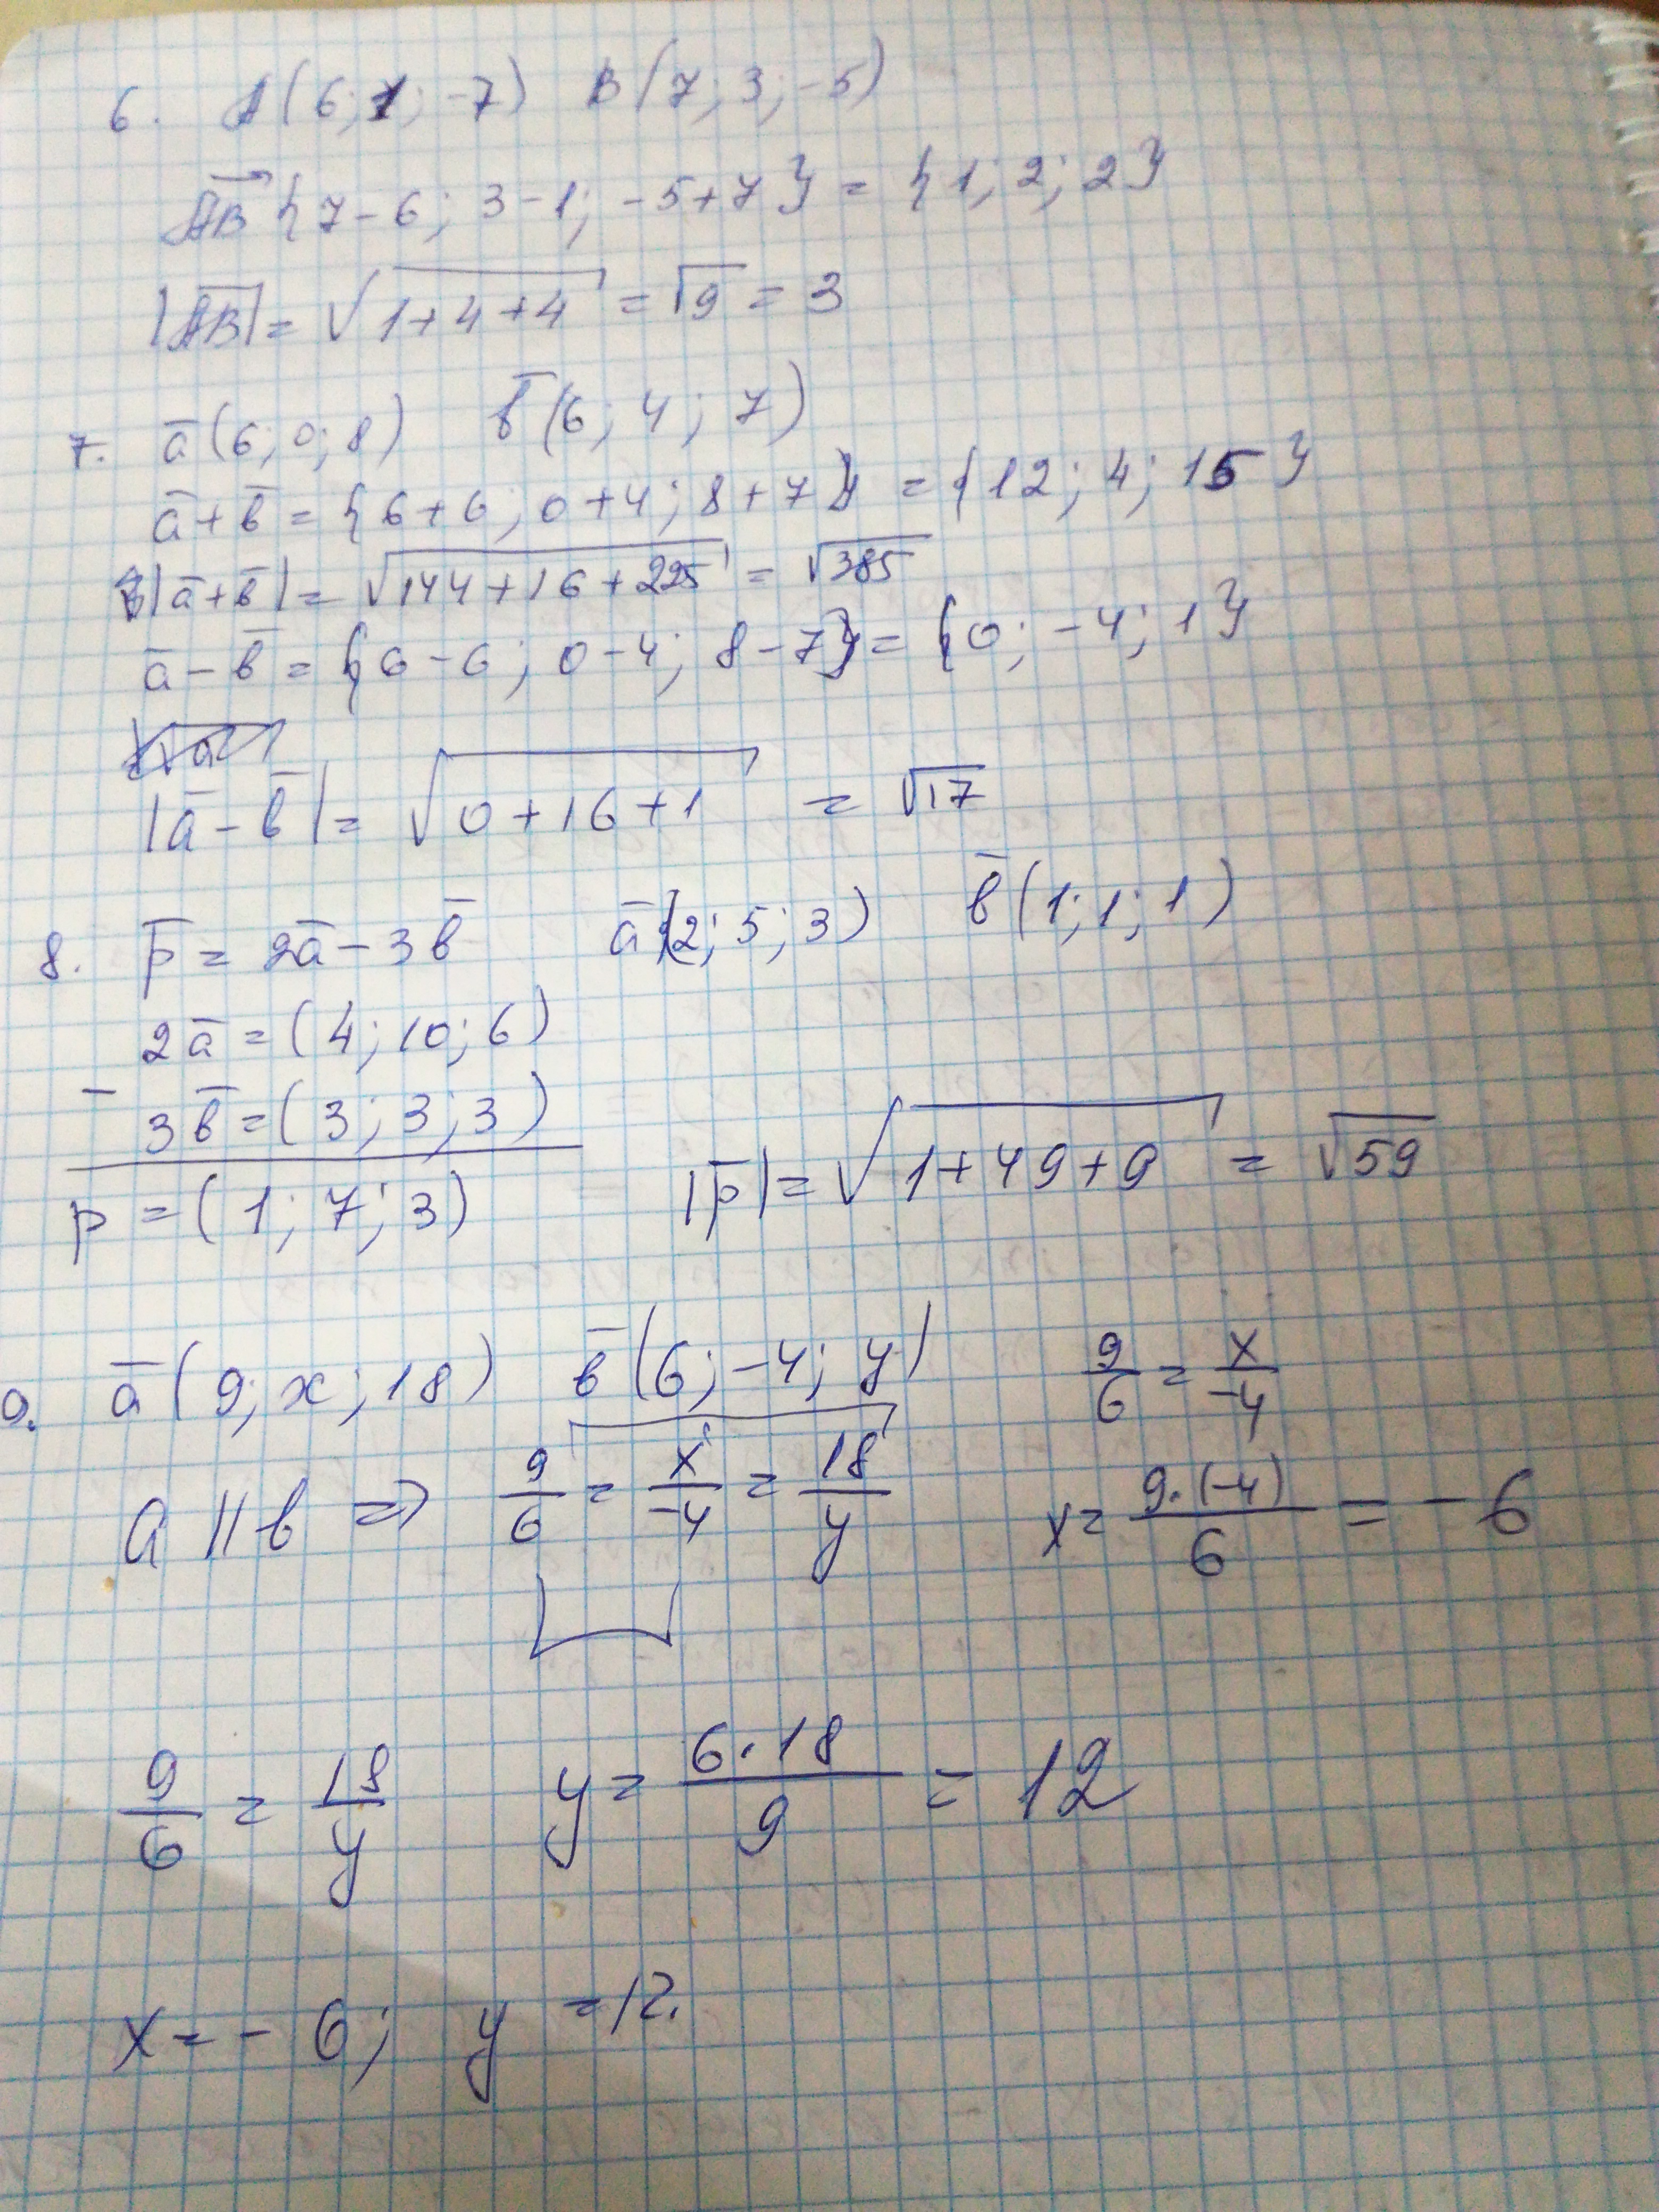 6. A(6; 1; -7) B(7; 3; -5)
AB {7-6; 3-1; -5+7} = {1; 2; 2}
|AB| = √1+4+4 = √9 = 3
7. a(6; 0; 8) в(6; 4; 7)
a+в = {6+6; 0+4; 8+7} = {12; 4; 15}
|a+в| = √144+16+225 = √385
a-в = {6-6; 0-4; 8-7} = {0; -4; 1}
|a-в| = √0+16+1 = √17
8. p = 2a-3в a(2; 5; 3) в(1; 1; 1)
2a = (4; 10; 6)
- 3в = (3; 3; 3)
p = (1; 7; 3) |p| = √1+49+9 = √59
9. a(9; x; 18) в(6; -4; y) 9/6 = x/-4
a || в ⇒ 9/6 = x/-4 = 18/y x = 9·(-4)/6 = -6
9/6 = 18/y y = 6·18/9 = 12
x = -6; y = 12.